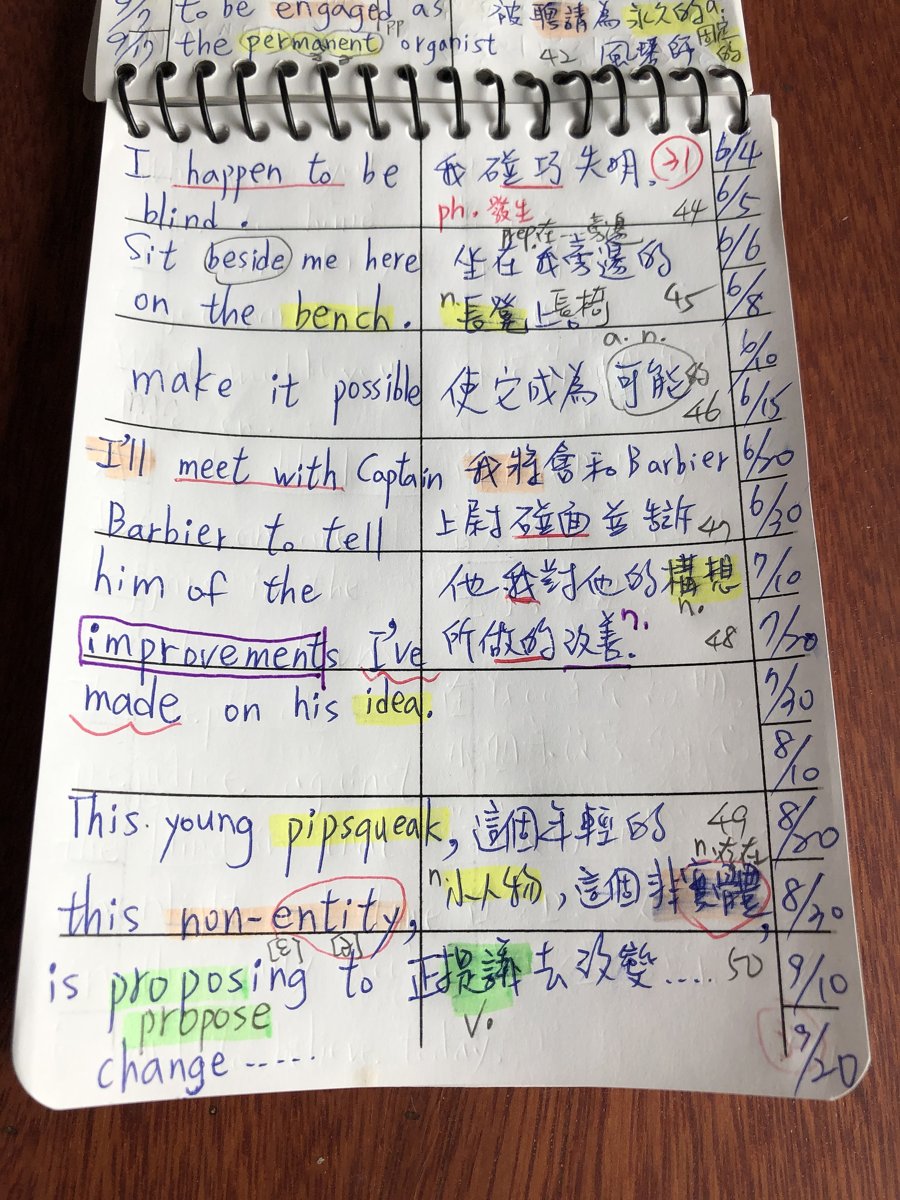 9/7 to be engaged as 被聘請為永久的 a.
pp
9/17 the permanent organist 42 風琴師 固定的
I happen to be 我碰巧失明. 31 6/4
blind. ph. 發生 44 6/5
prep. 在…旁邊
Sit beside me here 坐在我旁邊的 6/6
on the bench. n. 長凳上 長椅 45 6/8
a. n. 6/10
make it possible 使它成為可能的 46 6/15
I'll meet with Captain 我將會和Barbier 6/20
Barbier to tell 上尉碰面並告訴 47 6/30
him of the 他我對他的構想 7/10
n.
improvements I've 所做的改善. n. 48 7/20
made on his idea. 7/30
8/10
This young pipsqueak, 這個年輕的 49 8/20
n. 存在
this non-entity, n. 小人物, 這個非實體, 8/30
[ɛ] [ə]
is proposing to 正提議去改變..... 50 9/10
propose v.
change ...... 9/20